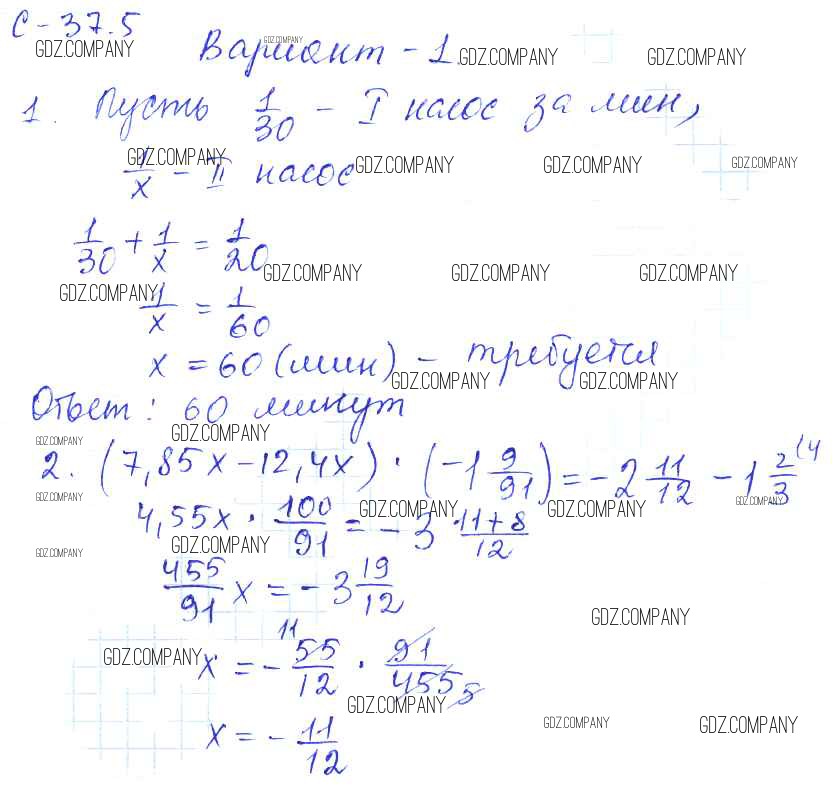 С-37.5
GDZ.COMPANY GDZ.COMPANY
Вариант - 1. GDZ.COMPANY GDZ.COMPANY
1. Пусть 1/30 - I насос за мин,
GDZ.COMPANY
1/x - II насос GDZ.COMPANY GDZ.COMPANY GDZ.COMPANY
1/30 + 1/x = 1/20
GDZ.COMPANY GDZ.COMPANY GDZ.COMPANY
GDZ.COMPANY
1/x = 1/60
x = 60 (мин) - требуется
GDZ.COMPANY GDZ.COMPANY
Ответ: 60 минут
GDZ.COMPANY GDZ.COMPANY
2. (7,85x - 12,4x) · (-1 9/91) = -2 11/12 - 1 2/3 (4
GDZ.COMPANY GDZ.COMPANY GDZ.COMPANY GDZ.COMPANY
4,55x · 100/91 = -3 · 11+8/12
GDZ.COMPANY GDZ.COMPANY
455/91 x = -3 19/12
GDZ.COMPANY
11
x = - 55/12 · 91/455 5
GDZ.COMPANY
GDZ.COMPANY
x = - 11/12
GDZ.COMPANY GDZ.COMPANY